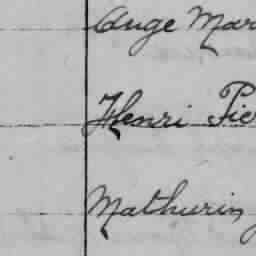 Ange Mar
Henri Pie
Mathurin